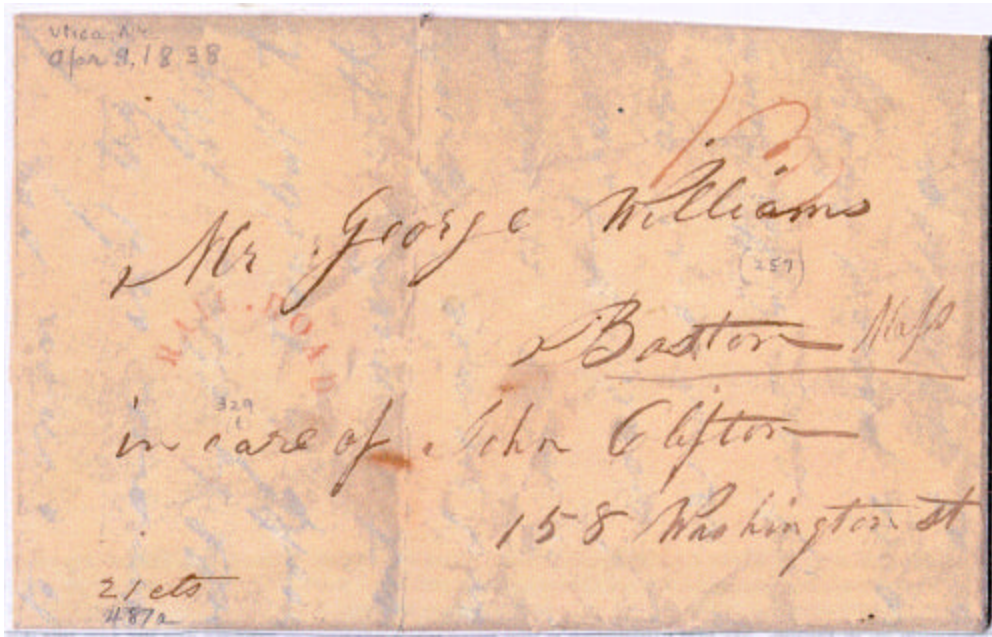 Utica, N.Y.
Apr 9, 1838
Mr George Williams
(257)
Boston Mass
RAIL.ROAD
329
in care of John Clifton
158 Washington st
21 cts
487a